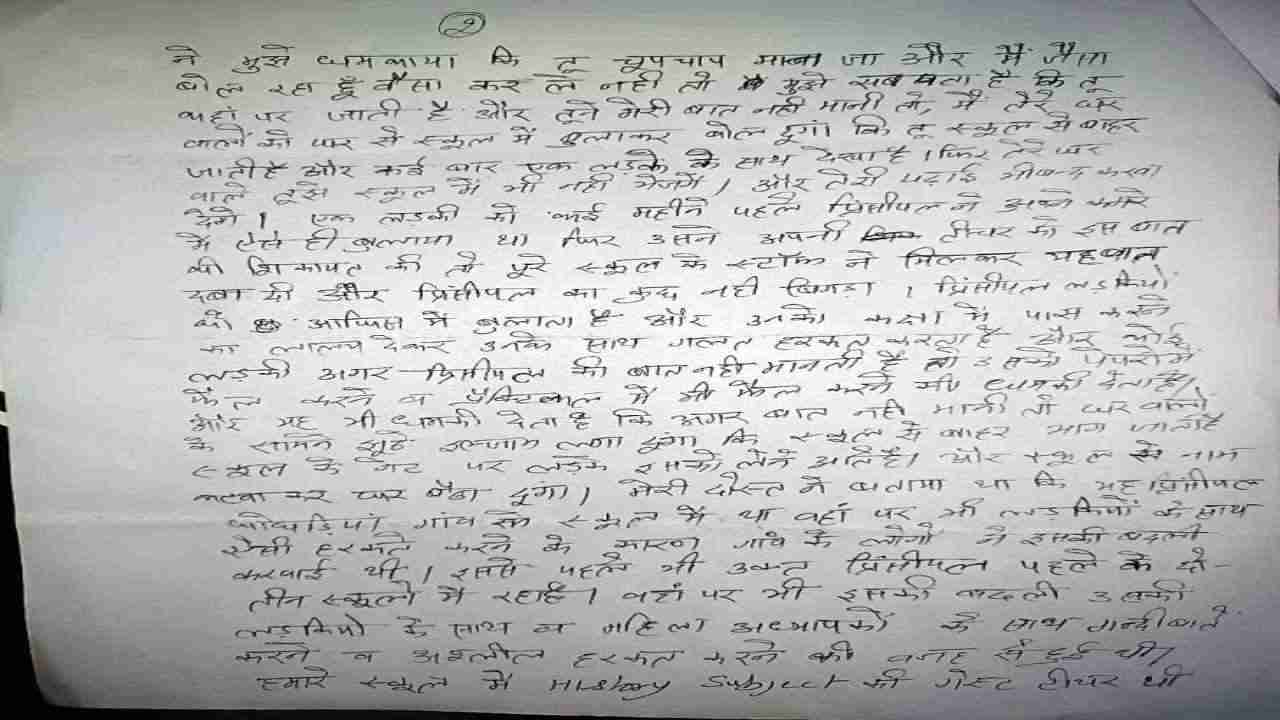 2
ने मुझे धमकाया कि तू चुपचाप मान जा और मैं जैसा
बोल रहा हूँ वैसा कर ले नही तो मुझे सब पता है कि तू
कहां पर जाती है और तूने मेरी बात नही मानी तो, मैं तेरे घर
वालों को घर से स्कूल में बुलाकर बोल दूगां कि तू स्कूल से बाहर
जाती है और कई बार एक लड़के के साथ देखा है। फिर तेरे घर
वाले तुझे स्कूल में भी नही भेजगें। और तेरी पढाई भी बन्द करवा
देगे। एक लड़की को कई महीने पहले प्रिंसीपल ने अपने कमरे
में ऐसे ही बुलाया था फिर उसने अपनी टीचर को इस बात
की शिकायत की तो पूरे स्कूल के स्टॉफ ने मिलकर यह बात
दबा दी और प्रिंसीपल का कुछ नही बिगड़ा। प्रिंसीपल लड़कियों
को आफिस में बुलाता है और उनको कक्षा में पास करने
का लालच देकर उनके साथ गलत हरकत करता है और कोई
लड़की अगर प्रिंसीपल की बात नही मानती है तो उसको पेपरो में
फैल करने व प्रैक्टिकल में भी फैल करने की धमकी देता है।
और यह भी धमकी देता है कि अगर बात नही मानी तो घर वालो
के सामने झूठे इल्जाम लगा दूंगा कि स्कूल से बाहर भाग जाती है
स्कूल के गेट पर लड़के इसको लेने आते है। और स्कूल से नाम
कटवा कर घर बैठा दूंगा। मेरी दोस्त ने बताया था कि यह प्रिंसीपल
गांव के स्कूल में था वहां पर भी लड़कियों के साथ
ऐसी हरकते करने के कारण गांव के लोगो ने इसकी बदली
करवाई थी। इससे पहले भी उक्त प्रिंसीपल पहले के दो-
तीन स्कूलो में रहा है। वहां पर भी इसकी बदली उसकी
लड़कियो के साथ व महिला अध्यापकों के साथ गन्दी बाते
करने व अश्लील हरकत करने की वजह से हुई थी।
हमारे स्कूल में History Subject की गेस्ट टीचर थी